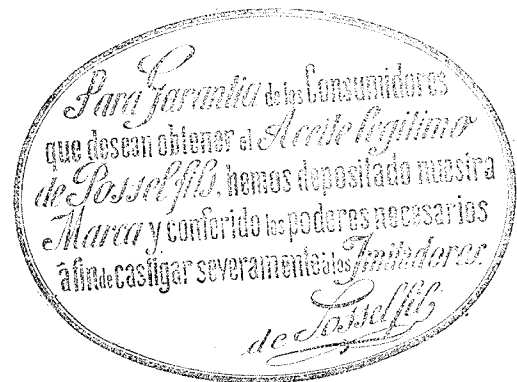 Para Garantia de los Consumidores
que desean obtener el Aceite legitimo
de Possel fils, hemos depositado nuestra
Marca y conferido los poderes necesarios
á fin de castigar severamente á los Imitadores.
de Possel fils